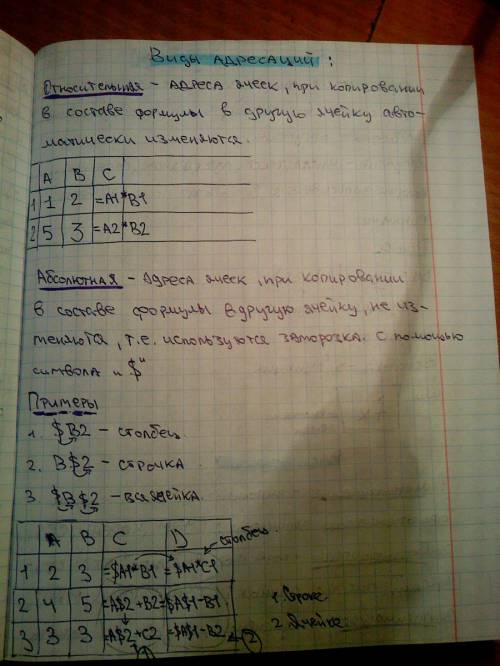 Виды адресаций:
Относительная - адреса ячеек, при копировании
в составе формулы в другую ячейку авто-
матически изменяются.
A B C
1 1 2 =A1*B1
2 5 3 =A2*B2
Абсолютная - адреса ячеек, при копировании
в составе формулы в другую ячейку, не из-
меняются, т.е. используются заморозка. с помощью
символа " $ "
Примеры
1. $B2 - столбец
2. B$2 - строчка
3 $B$2 - вся ячейка.
A B C D столбец
1 2 3 =$A1*B1 =$A1*C1
2 4 5 =A$2+B2 =$A$1-B1 1 Строка
3 3 3 =A$2+C2 =$A$1-B2 2 2 Ячейка